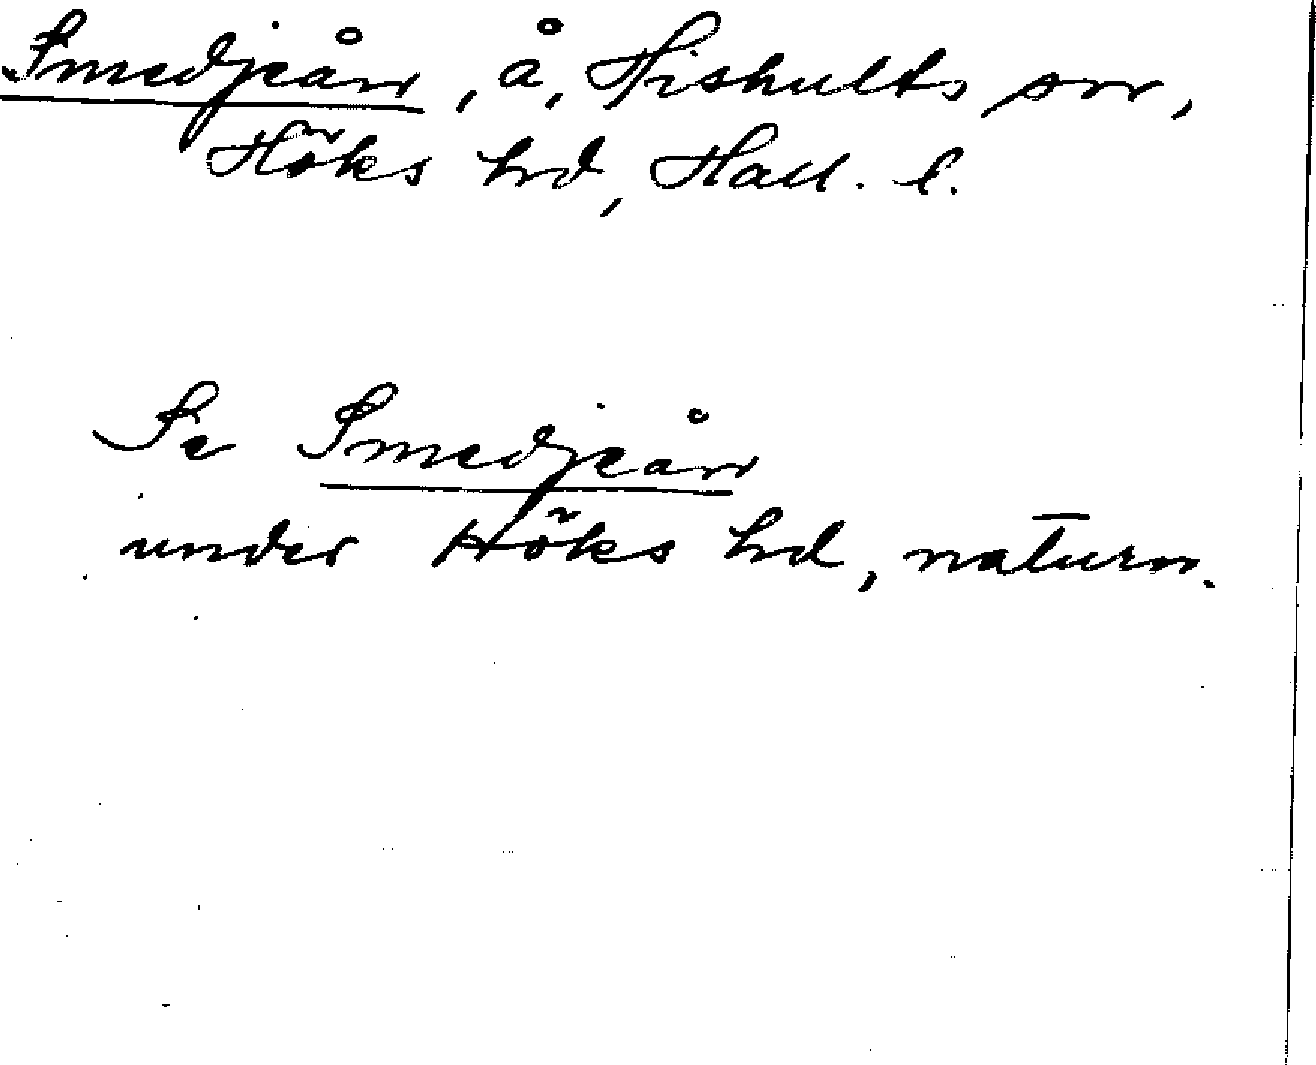 Smedjeån, å, Hishults sn,
Höks hd, Hall. l.
Se Smedjeån
under Höks hd, naturn.